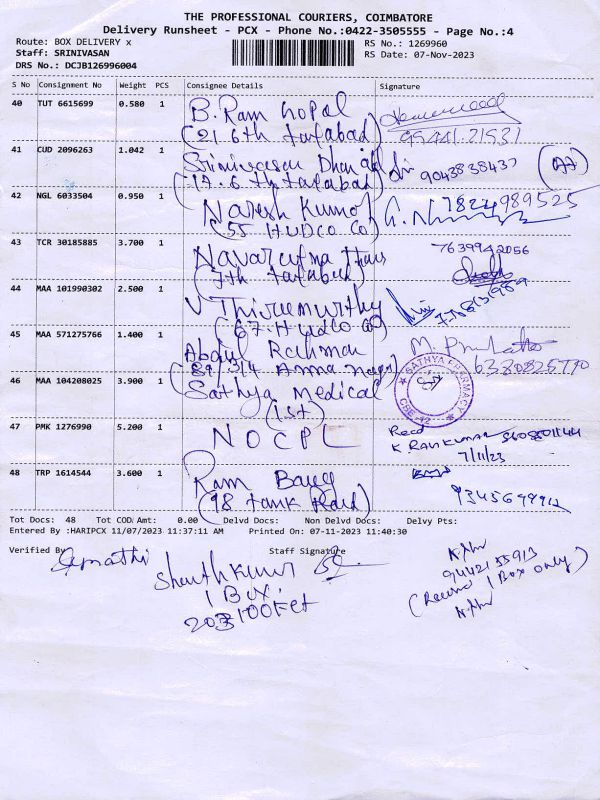 THE PROFESSIONAL COURIERS, COIMBATORE
Delivery Runsheet - PCX - Phone No.:0422-3505555 - Page No.:4
Route: BOX DELIVERY x
RS No.: 1269960
Staff: SRINIVASAN
RS Date: 07-Nov-2023
DRS No.: DCJB126996004
S No Consignment No Weight PCS Consignee Details Signature
40 TUT 6615699 0.580 1 B. Ram Gopal
(21 6th tatabad) 99441.21531
41 CUD 2096263 1.042 1 Srinivasan
(17.6th tatabad) 9043838437
42 NGL 6033504 0.950 1 Naresh Kumar 7824989525
(55 HUDCO CO)
43 TCR 30185885 3.700 1 7639942056
(7th tatabad)
44 MAA 101990302 2.500 1 V Thirumurthy
(67.Hudco CO)
45 MAA 571275766 1.400 1 Abdul Rahman M.
(89/3/4 Anna nagar)
46 MAA 104208025 3.900 1 Sathya Medical
(1st)
SATHYA PHARMACY
CBE-12
47 PMK 1276990 5.200 1 NOCPL Recd
K. RAVIKUMAR
7/11/23
48 TRP 1614544 3.600 1 Ram
(98 tank Road)
Tot Docs: 48 Tot COD Amt: 0.00 Delvd Docs: Non Delvd Docs: Delvy Pts:
Entered By :HARIPCX 11/07/2023 11:37:11 AM Printed On: 07-11-2023 11:40:30
Verified By Staff Signature
1 Box
9442155913
1 Box only)